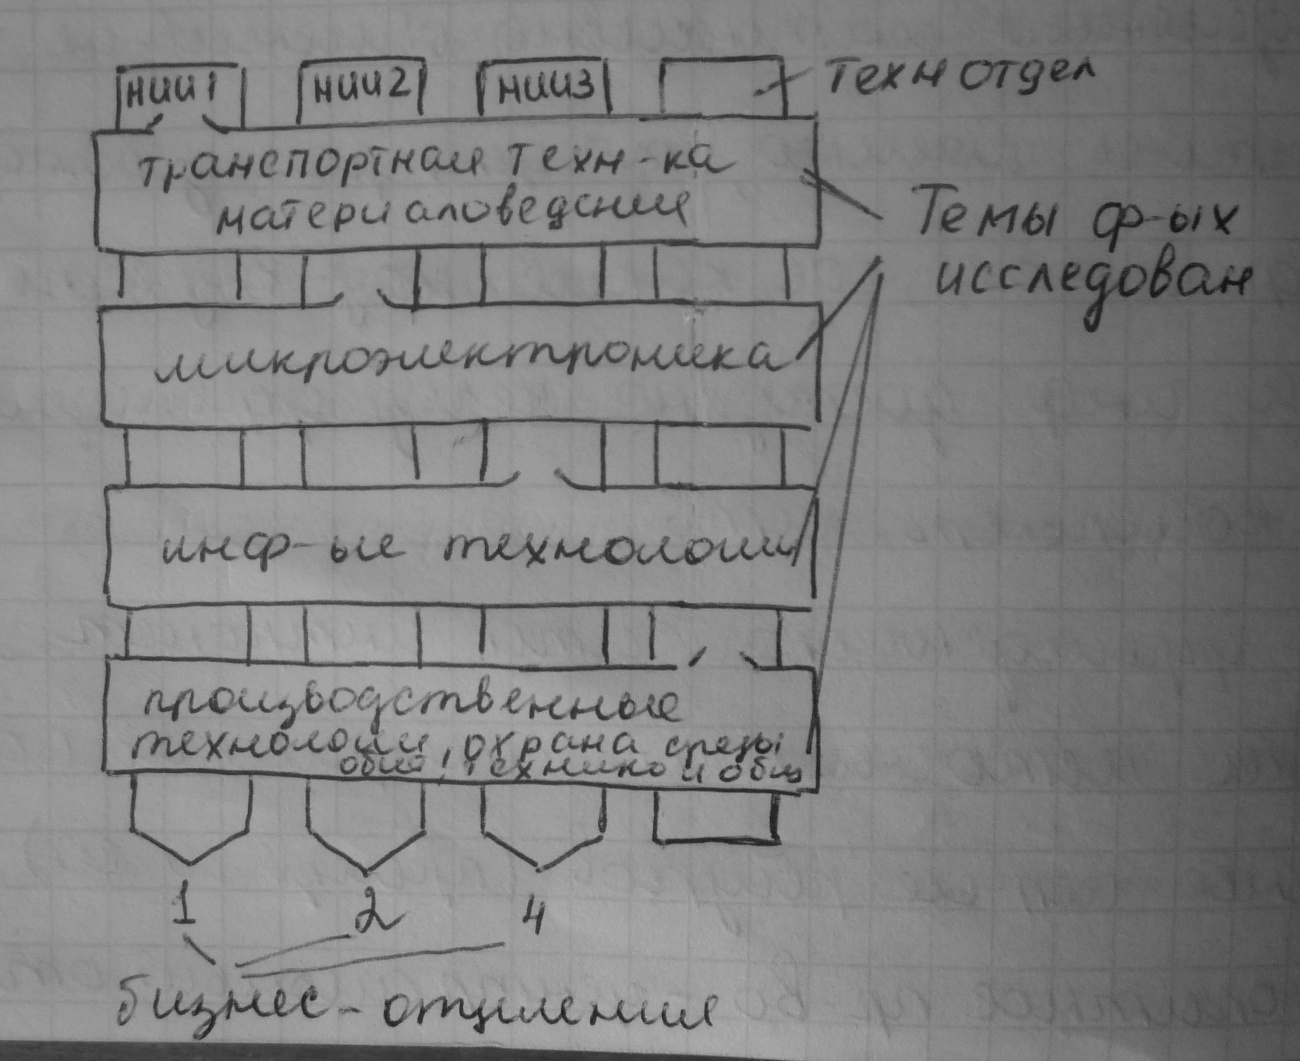 НИИ1 НИИ2 НИИ3 Техн отдел
транспортная техн-ка
материаловедение
Темы ф-ых
исследован
микроэлектроника
инф-ые технологии
производственные
технологии, охрана среды
общ
техника и общ
1 2 4
бизнес-отделения